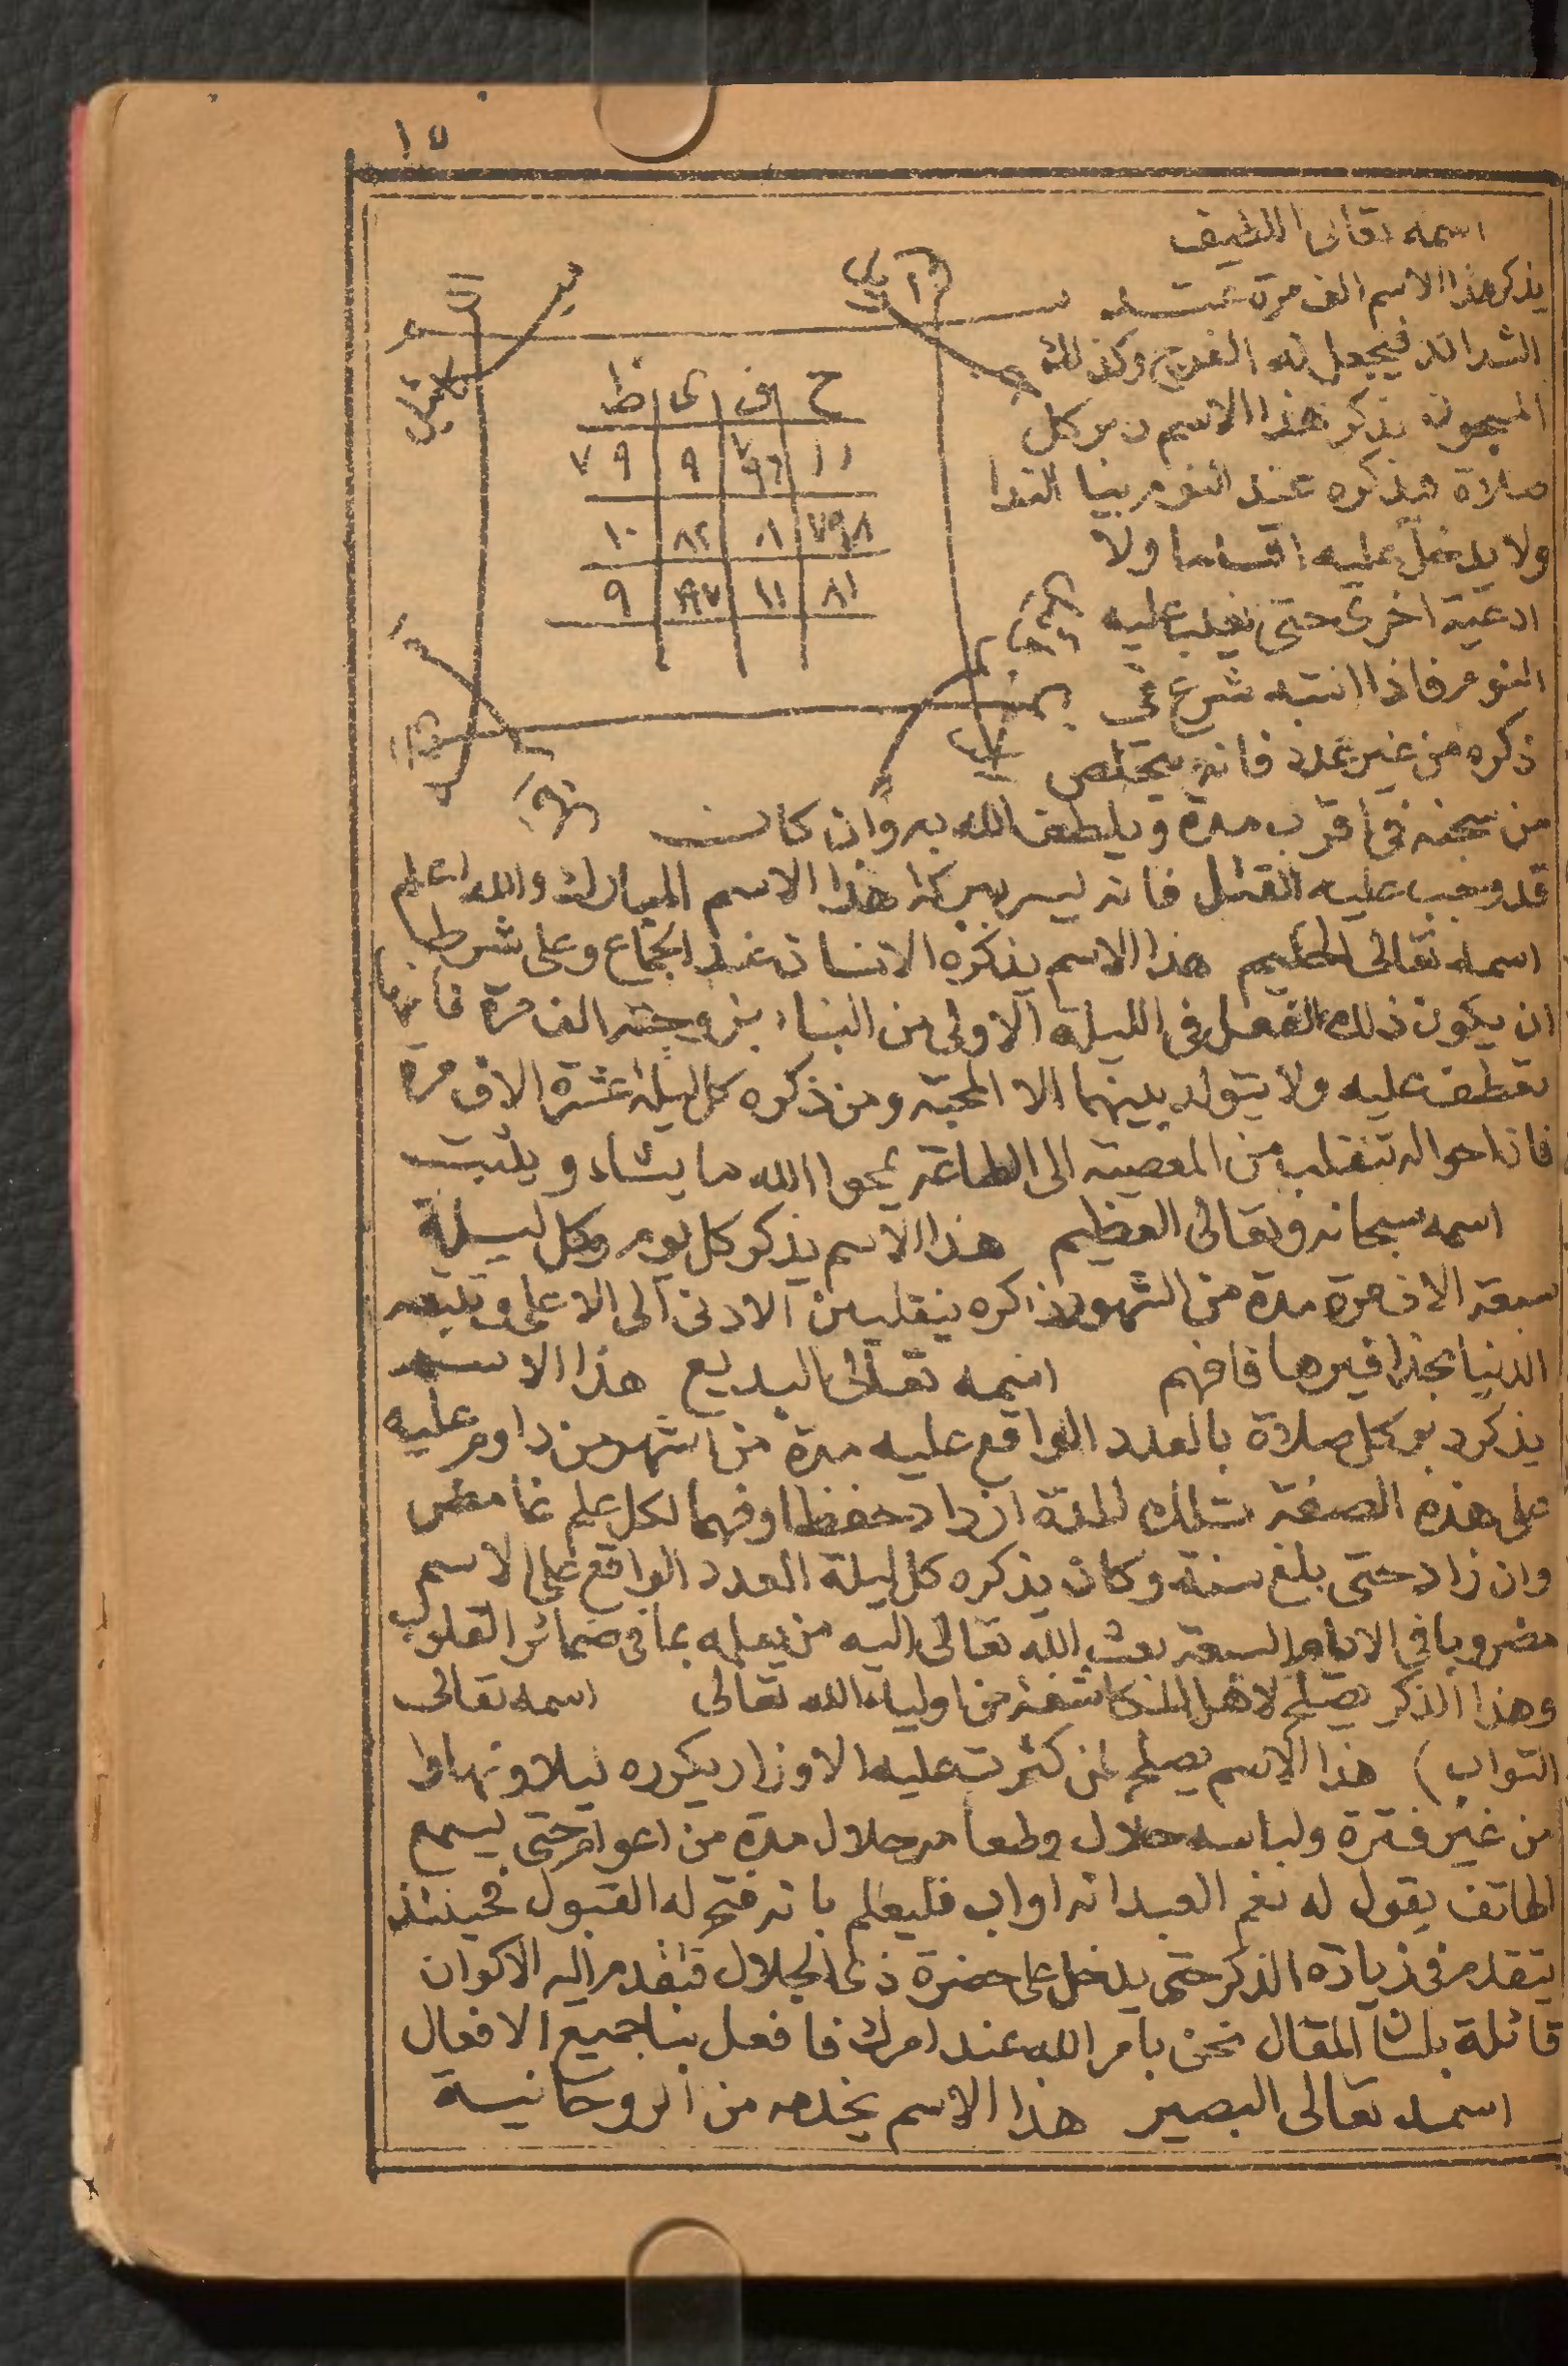 ١٥
اسمه تعالى اللطيف
يذكر هذا الاسم الف مرة عند
الشدائد فيجعل له الفرج وكذلك
المسجون يذكر هذا الاسم دبر كل
صلاة ويذكره عند النوم بيا الندا
ولا يدخل عليه اقساما ولا
ادعية اخرى حتى يغلب عليه
النوم فاذا انتبه شرع في
ذكره من غير عدد فانه يتخلص
ح ف ى ظ
١١ ٧٩٦ ٩ ٧٩
٧٩٨ ٨ ٨٢ ١٠
٨١ ١١ ٧٩٧ ٩
من سجنه في اقرب مدة ويلطف الله به وان كان
قد وجب عليه القتل فانه ليسر ببركة هذا الاسم المبارك والله اعلم
اسمه تعالى الحليم هذا الاسم يذكره الانسان عند الجماع وعلى شرط
ان يكون ذلك الفعل في الليلة الاولى من البناء بزوجته الف مرة فانها
تعطف عليه ولا يتولد بينهما الا المحبة ومن ذكره كل ليلة عشرة الاف مرة
فان احواله تنقلب من المعصية الى الطاعة يمحوا الله ما يشاء ويثبت
اسمه سبحانه وتعالى العظيم هذا الاسم يذكر كل يوم وكل ليلة
سبعة الاف مرة مدة من الشهور ذاكره ينقلب من الادنى الى الاعلى وتتبعه
الدنيا بحذافيرها فافهم اسمه تعالى البديع هذا الاسم
يذكر دبر كل صلاة بالعدد الواقع عليه مدة من اشهر من داوم عليه
على هذه الصفة تلك المدة ازداد حفظا وفهما لكل علم غامض
وان زاد حتى بلغ سنة وكان يذكره كل ليلة العدد الواقع على الاسم
مضروبا في الايام السبعة بعث الله تعالى اليه من يعلمه بما في ضمائر القلوب
وهذا الذكر يصلح لاهل المكاشفة من اولياء الله تعالى اسمه تعالى
التواب) هذا الاسم يصلح لمن كثرت عليه الاوزار يكرره ليلا ونهارا
من غير فترة ولباسه حلال وطعامه حلال مدة من اعوام حتى يسمع
الهاتف يقول له نعم العبد انه اواب فليعلم بانه فتح له القبول فحينئذ
يتقدم في زيادة الذكر حتى يدخل على حضرة ذى الجلال فتقدم اليه الاكوان
قائلة بلسان المقال نحن بامر الله عند امرك فافعل بنا جميع الافعال
اسمه تعالى البصير هذا الاسم يخدمه من الروحانية